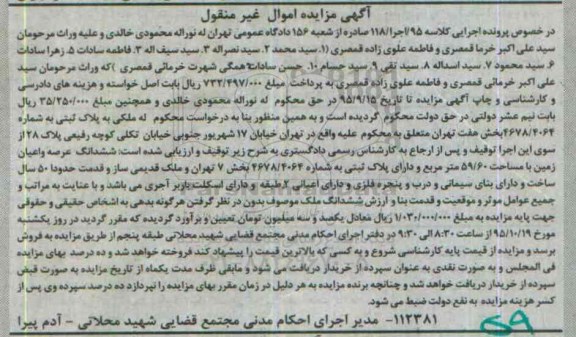 آگهی مزایده اموال غیر منقول
در خصوص پرونده اجرایی کلاسه ۹۵/اجرا/۱۱۸ صادره از شعبه ۱۵۶ دادگاه عمومی تهران له نوراله محمودی خالدی و علیه وراث مرحومان
سید علی اکبر خرما قمصری و فاطمه علوی زاده قمصری (۱. سید محمد ۲. سید نصراله ۳. سید سیف اله ۴. فاطمه سادات ۵. زهرا سادات
۶. سید محمود ۷. سید اسداله ۸. سید تقی ۹. سید حسام ۱۰. حسن سادات همگی شهرت خرمائی قمصری )که وراث مرحومان سید
علی اکبر خرمائی قمصری و فاطمه علوی زاده قمصری به پرداخت مبلغ ۷۳۲/۴۹۷/۰۰۰ ریال بابت اصل خواسته و هزینه های دادرسی
و کارشناسی و چاپ آگهی مزایده تا تاریخ ۹۵/۹/۱۵ در حق محکوم له نوراله محمودی خالدی و همچنین مبلغ ۳۵/۲۵۰/۰۰۰ ریال
بابت نیم عشر دولتی در حق دولت محکوم گردیده است و به همین منظور بنا به درخواست محکوم له ملکی به پلاک ثبتی به شماره
۴۶۷۸/۴۰۶۴بخش هفت تهران متعلق به محکوم علیه واقع در تهران خیابان ۱۷ شهریور جنوبی خیابان تکلی کوچه رفیعی پلاک ۲۸ از
سوی این اجرا توقیف و پس از ارجاع به کارشناس رسمی دادگستری به شرح زیر توقیف و ارزیابی شده است: ششدانگ عرصه واعیان
زمین با مساحت ۵۹/۶۰ متر مربع و دارای پلاک ثبتی به شماره ۴۶۷۸/۴۰۶۴ بخش ۷ تهران و ملک قدیمی ساز و قدمت حدودا ۵۰ سال
ساخت و دارای بنای سیمانی و درب و پنجره فلزی و دارای اعیانی ۲ طبقه و دارای اسکلت باربر آجری می باشد و با عنایت به مراتب و
جمیع عوامل موثر و موقعیت و قدمت بنا و ارزش ششدانگ ملک موصوف بدون در نظر گرفتن هرگونه بدهی به اشخاص حقیقی و حقوقی
جهت پایه مزایده به مبلغ ۱/۰۳۰/۰۰۰/۰۰۰ ریال معادل یکصد و سه میلیون تومان تعیین و برآورد گردیده که مقرر گردید در روز یکشنبه
مورخ ۹۵/۱۰/۱۹ از ساعت ۸:۳۰ الی ۹:۳۰ در دفتر اجرای احکام مدنی مجتمع قضایی شهید محلاتی طبقه پنجم از طریق مزایده به فروش
برسد و مزایده از قیمت پایه کارشناسی شروع و به کسی که بالاترین قیمت را پیشنهاد کند فروخته خواهد شد و ده درصد بهای مزایده
فی المجلس و به صورت نقدی به عنوان سپرده از خریدار دریافت می شود و مابقی ظرف مدت یکماه از تاریخ مزایده به صورت قبض
سپرده از خریدار دریافت خواهد شد و چنانچه برنده مزایده به هر دلیل در زمان مقرر بهای مزایده را نپردازد ده درصد سپرده وی پس از
کسر هزینه مزایده به نفع دولت ضبط می شود.
۱۱۲۳۸۱- مدیر اجرای احکام مدنی مجتمع قضایی شهید محلاتی - آدم پیرا